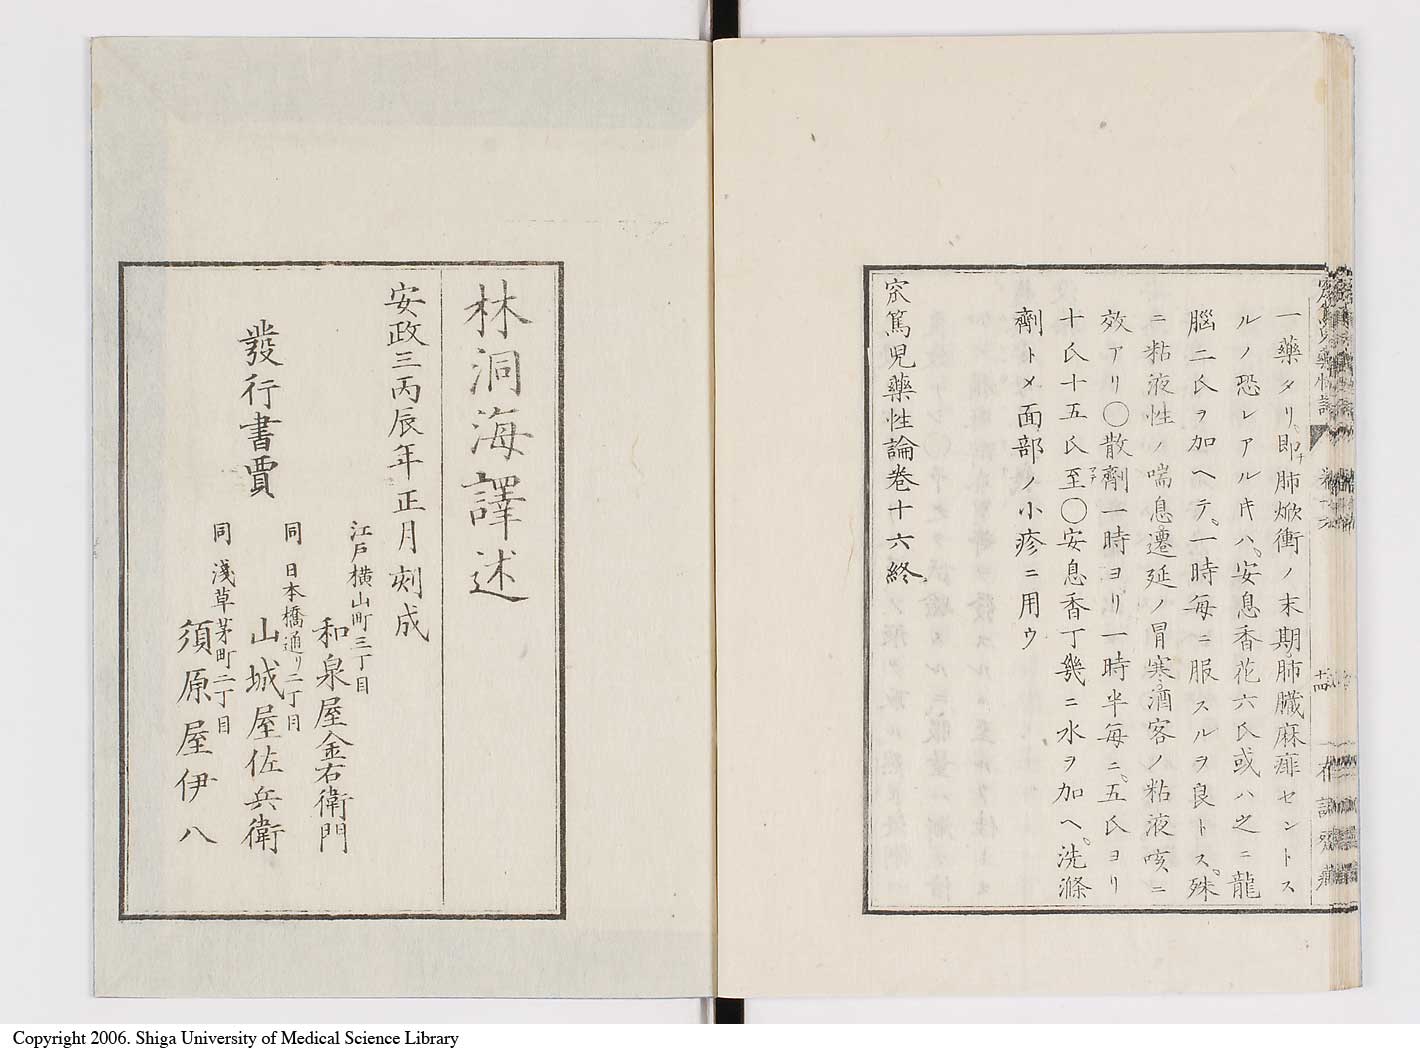 一藥タリ即チ肺焮衝ノ末期肺臓麻痺セントス
ルノ恐レアル㐧ハ安息香花六氏或ハ之ニ龍
腦二氏ヲ加ヘテ一時毎ニ服スルヲ良トス殊
ニ粘液性ノ喘息遷延ノ冒寒酒客ノ粘液咳ニ
效アリ○散劑一時ヨリ一時半每ニ五氏ヨリ
十氏十五氏至○安息香丁幾ニ水ヲ加ヘ洗滌
劑トメ面部ノ小疹ニ用ウ
窊篤児藥性論卷十六終
林洞海譯述
安政三丙辰年正月刻成
發行書賈
江戸横山町三丁目
和泉屋金右衛門
同 日本橋通リ二丁目
山城屋佐兵衛
同 淺草茅町二丁目
須原屋伊八
Copyright 2006. Shiga University of Medical Science Library